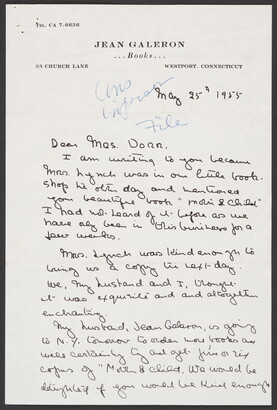 TEL. CA 7-6636
JEAN GALERON
...Books...
33 CHURCH LANE WESTPORT, CONNECTICUT
May 25th 1955
File
Dear Mrs. Dorr.
I am writing to you because
Mrs. Lynch was in our little book-
shop the other day and mentioned
your beautiful book "Mother & Child"
I had not heard of it before as we
have only been in this business for a
few weeks.
Mrs. Lynch was kind enough to
bring us a copy the next day.
We, my husband and I, thought
it was exquisite and and altogether
enchanting.
My husband, Jean Galeron, is going
to N.Y. tomorrow to order now books and
will certainly try and get five or six
copies of "Mother & Child. We would be
delighted if you would be kind enough